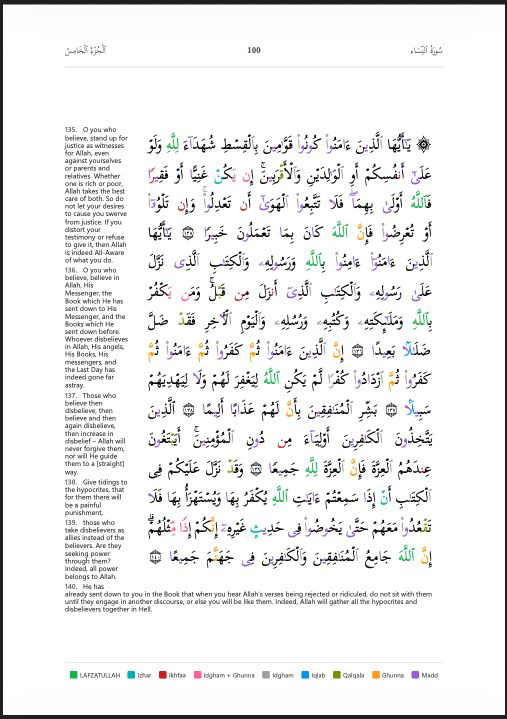 سُورَةُ ٱلنِّسَاء
100
ٱلْجُزْءُ ٱلْخَامِسُ
۞ يَٰٓأَيُّهَا ٱلَّذِينَ ءَامَنُوا۟ كُونُوا۟ قَوَّٰمِينَ بِٱلْقِسْطِ شُهَدَآءَ لِلَّهِ وَلَوْ
عَلَىٰٓ أَنفُسِكُمْ أَوِ ٱلْوَٰلِدَيْنِ وَٱلْأَقْرَبِينَ ۚ إِن يَكُنْ غَنِيًّا أَوْ فَقِيرًا
فَٱللَّهُ أَوْلَىٰ بِهِمَا ۖ فَلَا تَتَّبِعُوا۟ ٱلْهَوَىٰٓ أَن تَعْدِلُوا۟ ۚ وَإِن تَلْوُۥٓا۟
أَوْ تُعْرِضُوا۟ فَإِنَّ ٱللَّهَ كَانَ بِمَا تَعْمَلُونَ خَبِيرًا ١٣٥ يَٰٓأَيُّهَا
ٱلَّذِينَ ءَامَنُوٓا۟ ءَامِنُوا۟ بِٱللَّهِ وَرَسُولِهِۦ وَٱلْكِتَٰبِ ٱلَّذِى نَزَّلَ
عَلَىٰ رَسُولِهِۦ وَٱلْكِتَٰبِ ٱلَّذِىٓ أَنزَلَ مِن قَبْلُ ۚ وَمَن يَكْفُرْ
بِٱللَّهِ وَمَلَٰٓئِكَتِهِۦ وَكُتُبِهِۦ وَرُسُلِهِۦ وَٱلْيَوْمِ ٱلْءَاخِرِ فَقَدْ ضَلَّ
ضَلَٰلًۢا بَعِيدًا ١٣٦ إِنَّ ٱلَّذِينَ ءَامَنُوا۟ ثُمَّ كَفَرُوا۟ ثُمَّ ءَامَنُوا۟ ثُمَّ
كَفَرُوا۟ ثُمَّ ٱزْدَادُوا۟ كُفْرًا لَّمْ يَكُنِ ٱللَّهُ لِيَغْفِرَ لَهُمْ وَلَا لِيَهْدِيَهُمْ
سَبِيلًۢا ١٣٧ بَشِّرِ ٱلْمُنَٰفِقِينَ بِأَنَّ لَهُمْ عَذَابًا أَلِيمًا ١٣٨ ٱلَّذِينَ
يَتَّخِذُونَ ٱلْكَٰفِرِينَ أَوْلِيَآءَ مِن دُونِ ٱلْمُؤْمِنِينَ ۚ أَيَبْتَغُونَ
عِندَهُمُ ٱلْعِزَّةَ فَإِنَّ ٱلْعِزَّةَ لِلَّهِ جَمِيعًا ١٣٩ وَقَدْ نَزَّلَ عَلَيْكُمْ فِى
ٱلْكِتَٰبِ أَنْ إِذَا سَمِعْتُمْ ءَايَٰتِ ٱللَّهِ يُكْفَرُ بِهَا وَيُسْتَهْزَأُ بِهَا فَلَا
تَقْعُدُوا۟ مَعَهُمْ حَتَّىٰ يَخُوضُوا۟ فِى حَدِيثٍ غَيْرِهِۦٓ ۚ إِنَّكُمْ إِذًا مِّثْلُهُمْ ۗ
إِنَّ ٱللَّهَ جَامِعُ ٱلْمُنَٰفِقِينَ وَٱلْكَٰفِرِينَ فِى جَهَنَّمَ جَمِيعًا ١٤٠
135. O you who
believe, stand up for
justice as witnesses
for Allah, even
against yourselves
or parents and
relatives. Whether
one is rich or poor,
Allah takes the best
care of both. So do
not let your desires
to cause you swerve
from justice. If you
distort your
testimony or refuse
to give it, then Allah
is indeed All-Aware
of what you do.
136. O you who
believe, believe in
Allah, His
Messenger, the
Book which He has
sent down to His
Messenger, and the
Books which He
sent down before.
Whoever disbelieves
in Allah, His angels,
His Books, His
messengers, and
the Last Day has
indeed gone far
astray.
137. Those who
believe then
disbelieve, then
believe and then
again disbelieve,
then increase in
disbelief – Allah will
never forgive them,
nor will He guide
them to a [straight]
way.
138. Give tidings to
the hypocrites, that
for them there will
be a painful
punishment,
139. those who
take disbelievers as
allies instead of the
believers. Are they
seeking power
through them?
Indeed, all power
belongs to Allah.
140. He has
already sent down to you in the Book that when you hear Allah's verses being rejected or ridiculed, do not sit with them
until they engage in another discourse, or else you will be like them. Indeed, Allah will gather all the hypocrites and
disbelievers together in Hell.
LAFZATULLAH Izhar Ikhfaa Idgham + Ghunna Idgham Iqlab Qalqala Ghunna Madd